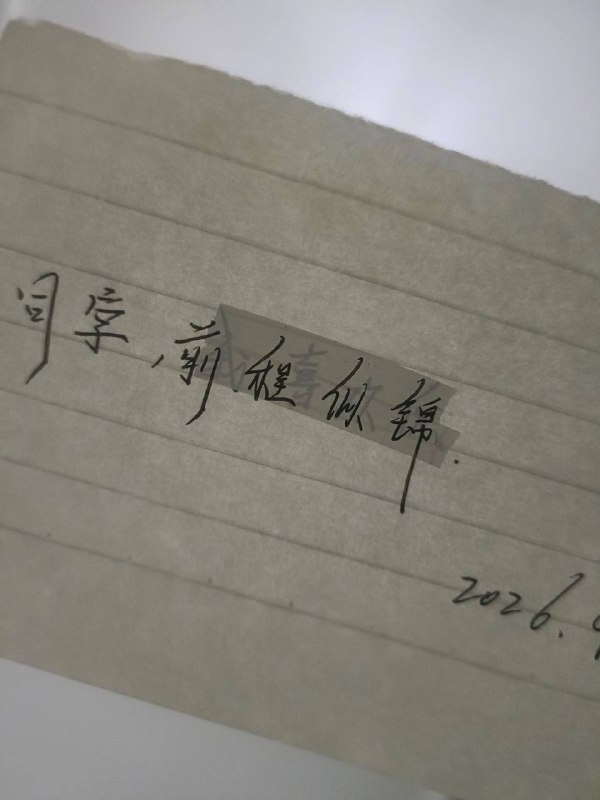 同学,前程似锦.
2026.